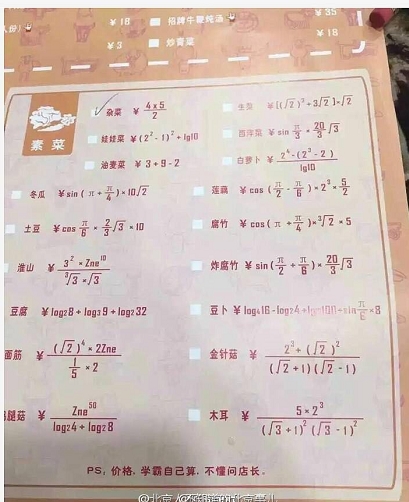 ¥18 招牌牛鞭炖汤 ¥35
¥3 炒青菜 ¥18
素菜
杂菜 ¥ 4×5/2
生菜 ¥[(√2)³+3√2]×√2
娃娃菜 ¥(2²-1)²+lg10
西洋菜 ¥ sin π/3 × 20/3 √3
油麦菜 ¥ 3+9-2
白萝卜 ¥ 2⁴-(2³-2)/lg10
冬瓜 ¥sin(π+π/4)×10√2
莲藕 ¥cos(π/2-π/6)×2³×5/2
土豆 ¥cos π/6 × 2/3 √3 ×10
腐竹 ¥cos(π+π/4)׳√2×5
淮山 ¥ 3²×Zne¹⁰/³√3×√3
炸腐竹 ¥sin(π/2+π/6)×20/3 √3
豆腐 ¥log₂8+log₃9+log₂32
豆卜 ¥log₄16-log₂4+lg100+sin π/6 ×8
面筋 ¥ (√2)⁴×2Zne/1/5×2
金针菇 ¥ 2³+(√2)²/(√2+1)(√2-1)
腿菇 ¥ Zne⁵⁰/log₂4+log₂8
木耳 ¥ 5×2³/(√3+1)²(√3-1)²
PS，价格，学霸自己算，不懂问店长。